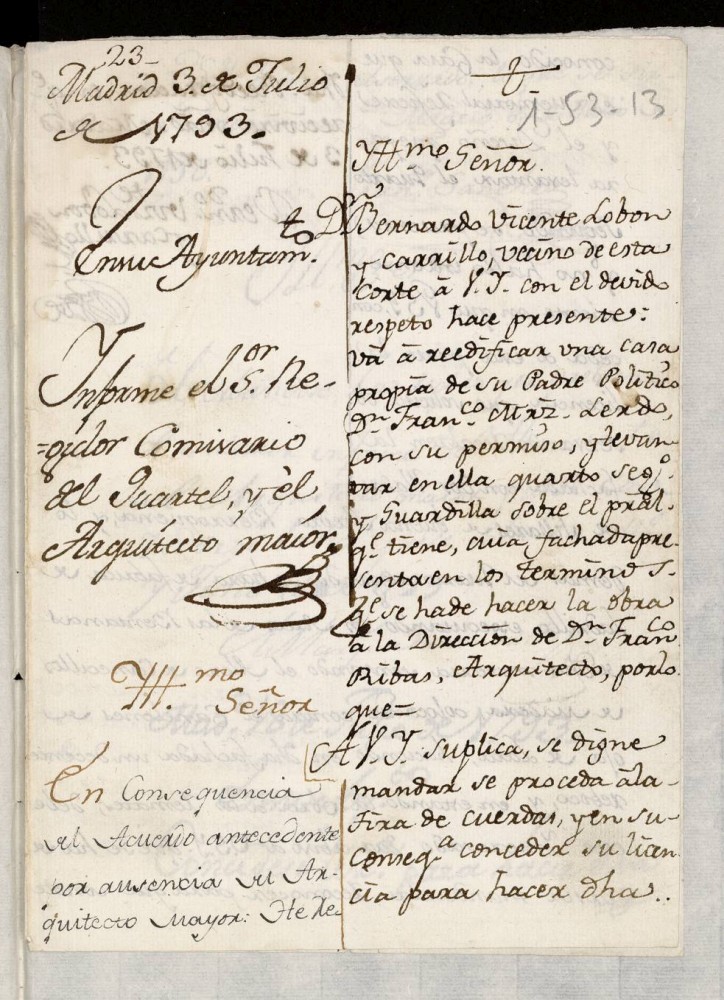 23-
Madrid 3. de Julio
de 1793.
En su Ayuntam.to
Informe el S.or Re-
=gidor Comisario
del Quartel, y el
Arquitecto maior.
Yll.mo
Señor
En Consequencia
del Acuerdo antecedente
por ausencia del Ar-
quitecto Mayor: He Re-
1-53-13
Yll.mo Señor.
D.n Bernardo Vicente Lobon
y Carrillo, vecino de esta
Corte â V.Y. con el devido
respeto hace presente:
vâ â reedificar una casa
propia de su Padre Politico
D.n Fran.co Mrz. Lerdo,
con su permiso, y levan
tar en ella quarto seg.o
y Guardilla sobre el pral.
q.e tiene, cuia fachada pre-
senta en los terminos.
q.e se ha de hacer la obra
â la Dirección de D.n Fran.co
Ribas, Arquitecto, por lo
que=
A V.Y. suplica, se digne
mandar se proceda â la-
tira de cuerdas, y en su-
conseq.a conceder su licen
cia para hacer dha..